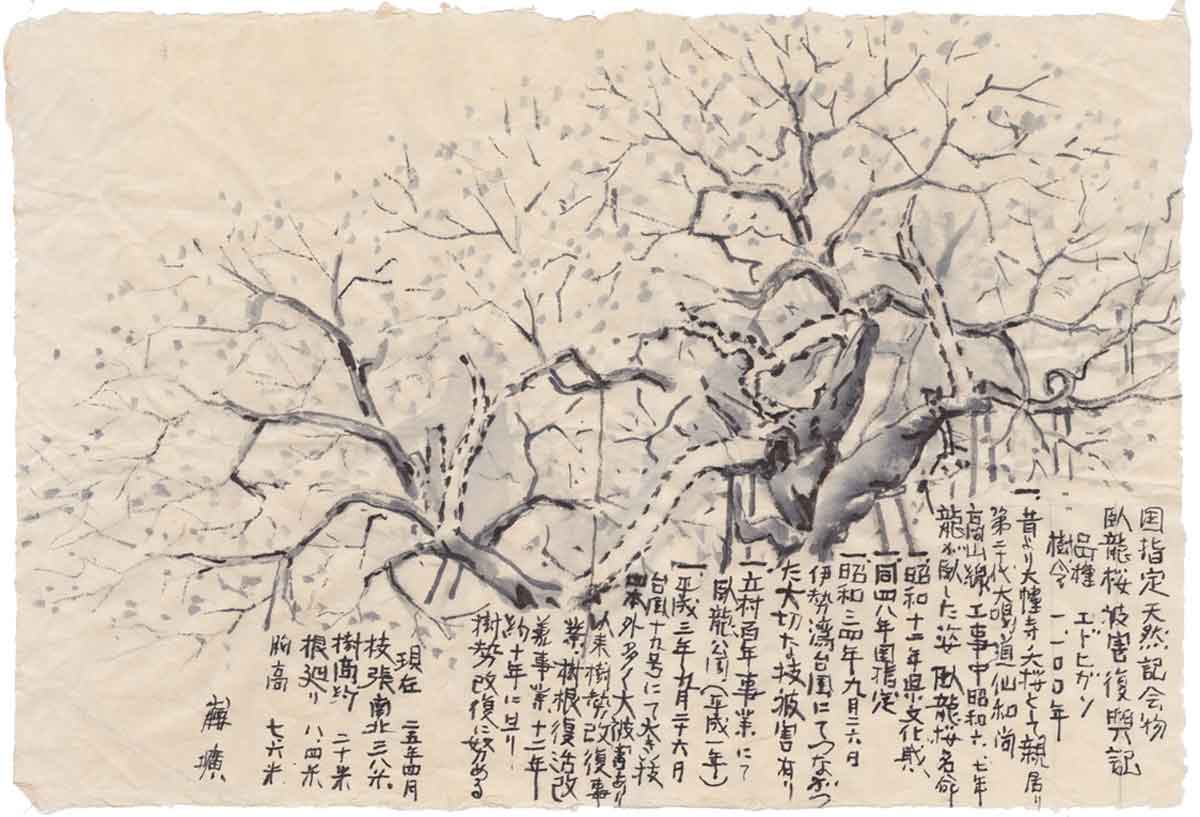 国指定天然記念物
臥龍桜被害復興記
品種 エドヒガン
樹令 一、一〇〇年
一、昔より大幢寺大桜として親居り
第二十代大頭道仙和尚
高山線工事中昭和六、七年
龍が臥した姿 臥龍桜名命
一、昭和十二年県文化財、
一、同四八年国指定
一、昭和三四年九月二六日
伊勢湾台風にてつながつ
た大切な枝被害有り
一、立村百年事業にて
臥龍公園（平成一年）
一、平成三年九月二十六日
台風十九号にて大き枝
四本外多く大被害あり
以来樹勢改復事
業、樹根復活改
善事業十二年
約十年に旦り
樹勢改復に努める
現在 二五年四月
枝張南北三八米、
樹高約 二十米
根廻り 八、四米
胸高 七、六米